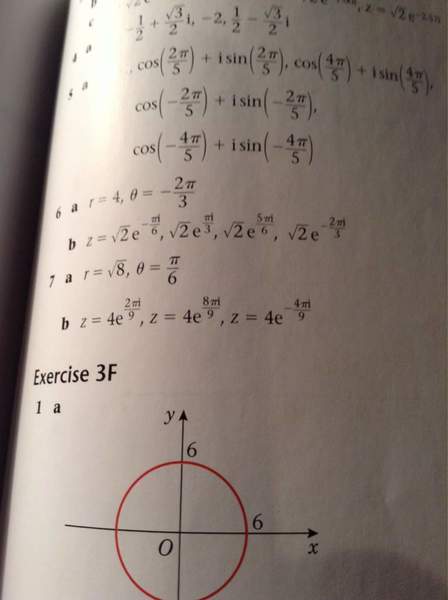 b
c 1/2 + √3/2 i, −2, 1/2 − √3/2 i
, z = √2e
4 a
5 a , cos(2π/5) + i sin(2π/5), cos(4π/5) + i sin(4π/5),
cos(−2π/5) + i sin(−2π/5),
cos(−4π/5) + i sin(−4π/5)
6 a r = 4, θ = −2π/3
b z = √2e^(−πi/6), √2e^(πi/3), √2e^(5πi/6), √2e^(−2πi/3)
7 a r = √8, θ = π/6
b z = 4e^(2πi/9), z = 4e^(8πi/9), z = 4e^(−4πi/9)
Exercise 3F
1 a
y
6
6
O
x